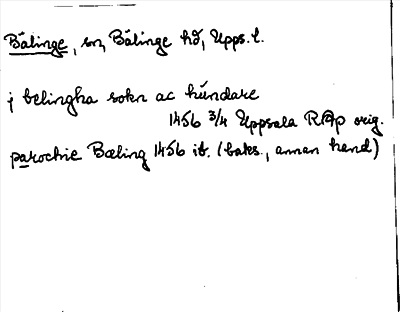 Bälinge, sn, Bälinge hd, Upps. l.
j belingha sokn ac hundare
1456 3/4 Uppsala RAp orig.
parochie Bæling 1456 ib. (baks., annan hand)